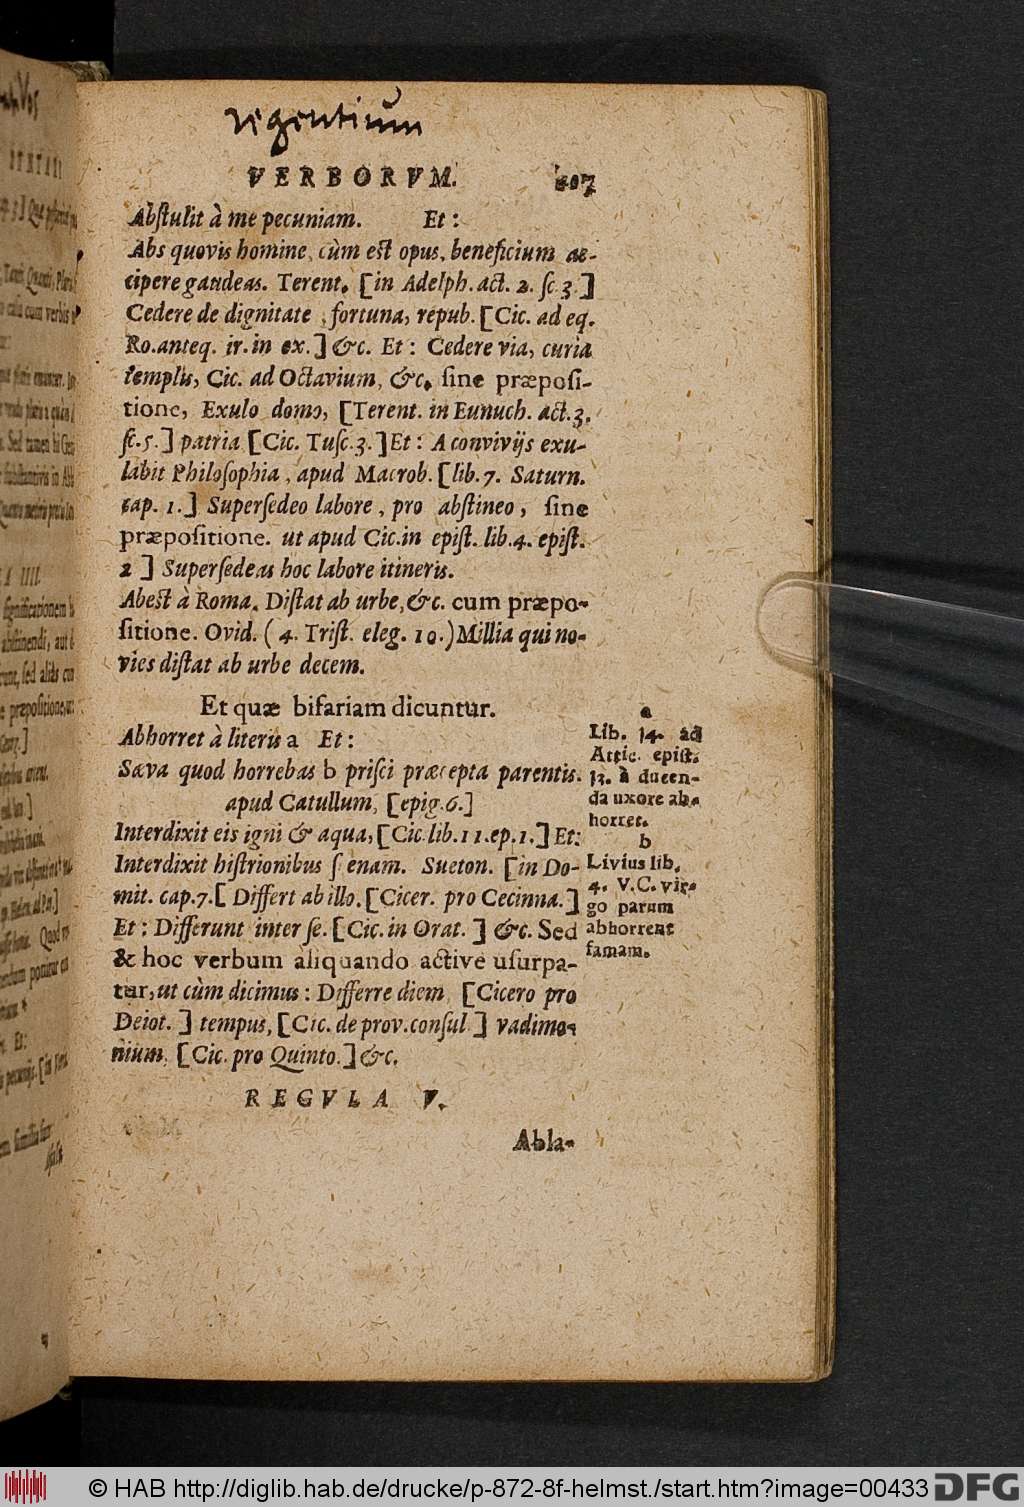 regentium
VERBORVM. 407
Abstulit à me pecuniam. Et:
Abs quovis homine, cùm est opus, beneficium ac-
cipere gaudeas. Terent. [in Adelph. act. 2. sc 3.]
Cedere de dignitate, fortuna, repub. [Cic. ad eq.
Ro. anteq. ir. in ex.] &c. Et: Cedere via, curia
templis, Cic. ad Octavium, &c. sine præposi-
tione, Exulo domo, [Terent. in Eunuch. act. 3.
sc. 5.] patria [Cic. Tusc. 3.] Et: A convivijs exu-
labit Philosophia, apud Macrob. [lib. 7. Saturn.
cap. 1.] Supersedeo labore, pro abstineo, sine
præpositione. ut apud Cic. in epist. lib. 4. epist.
2 ] Supersedeas hoc labore itineris.
Abest à Roma. Distat ab urbe, &c. cum præpo-
sitione. Ovid. ( 4. Trist. eleg. 10.) Millia qui no-
vies distat ab urbe decem.
Et quæ bifariam dicuntur.
Abhorret à literis a Et:
Sæva quod horrebas b prisci præcepta parentis.
apud Catullum, [epig. 6.]
Interdixit eis igni & aqua, [Cic. lib. 11. ep. 1.] Et:
Interdixit histrionibus s enam. Sueton. [in Do-
mit. cap. 7.[ Differt ab illo. [Cicer. pro Cecinna.]
Et: Differunt inter se. [Cic. in Orat. ] &c. Sed
& hoc verbum aliquando active usurpa-
tur, ut cùm dicimus: Differre diem, [Cicero pro
Deiot. ] tempus, [Cic. de prov. consul ] vadimo-
nium, [Cic. pro Quinto.] &c.
REGVLA V.
Abla-
a
Lib. 14. ad
Attic. epist.
13. à ducen-
da uxore ab-
horret.
b
Livius lib.
4. V.C. vir-
go parum
abhorrent
famam.
© HAB http://diglib.hab.de/drucke/p-872-8f-helmst./start.htm?image=00433 DFG